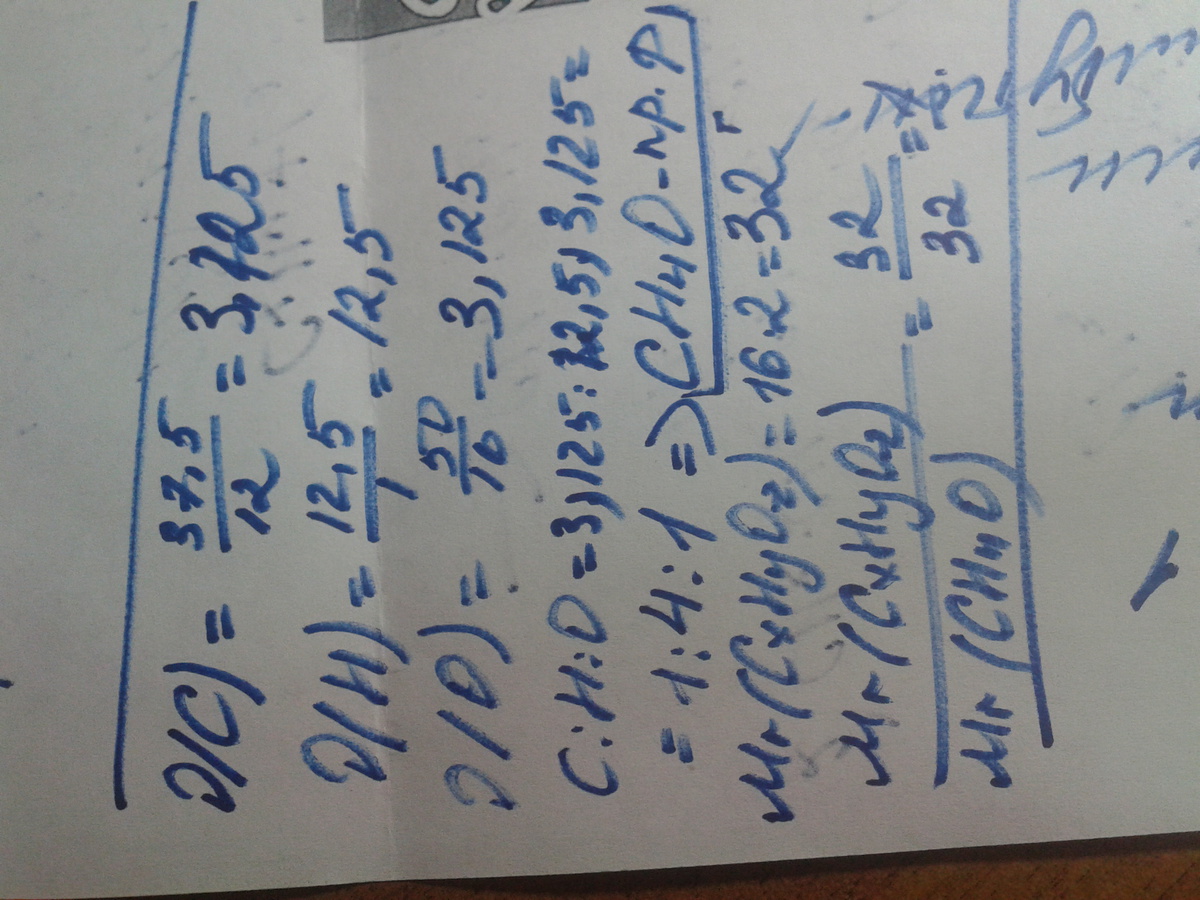 D(C) = 37,5/12 = 3,125
D(H) = 12,5/1 = 12,5
D(O) = 50/16 = 3,125
C:H:O = 3,125:12,5:3,125 =
= 1:4:1 => CH4O - пр. ф
Mr(CxHyOz) = 16·2 = 32
Mr(CxHyOz)/Mr(CH4O) = 32/32 =
1